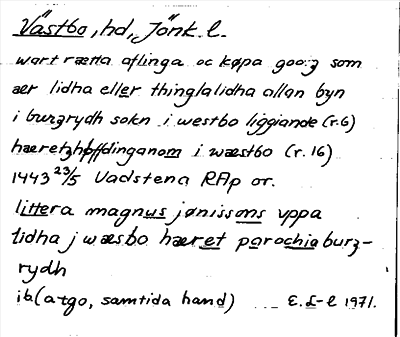 Västbo, hd, Jönk. l.
wart rætta aflinga oc køpa gooz som
aer lidha eller thinglalidha allan byn
i burzrydh sokn i westbo liggiande (r.6)
hæretzhøffdinganom i wæstbo (r. 16)
1443 23/5 Vadstena RAp or.
littera magnus jønissons vppa
lidha j wæsbo hæret parochia burz-
rydh
ib. (a-tgo, samtida hand) E. L-l 1971.